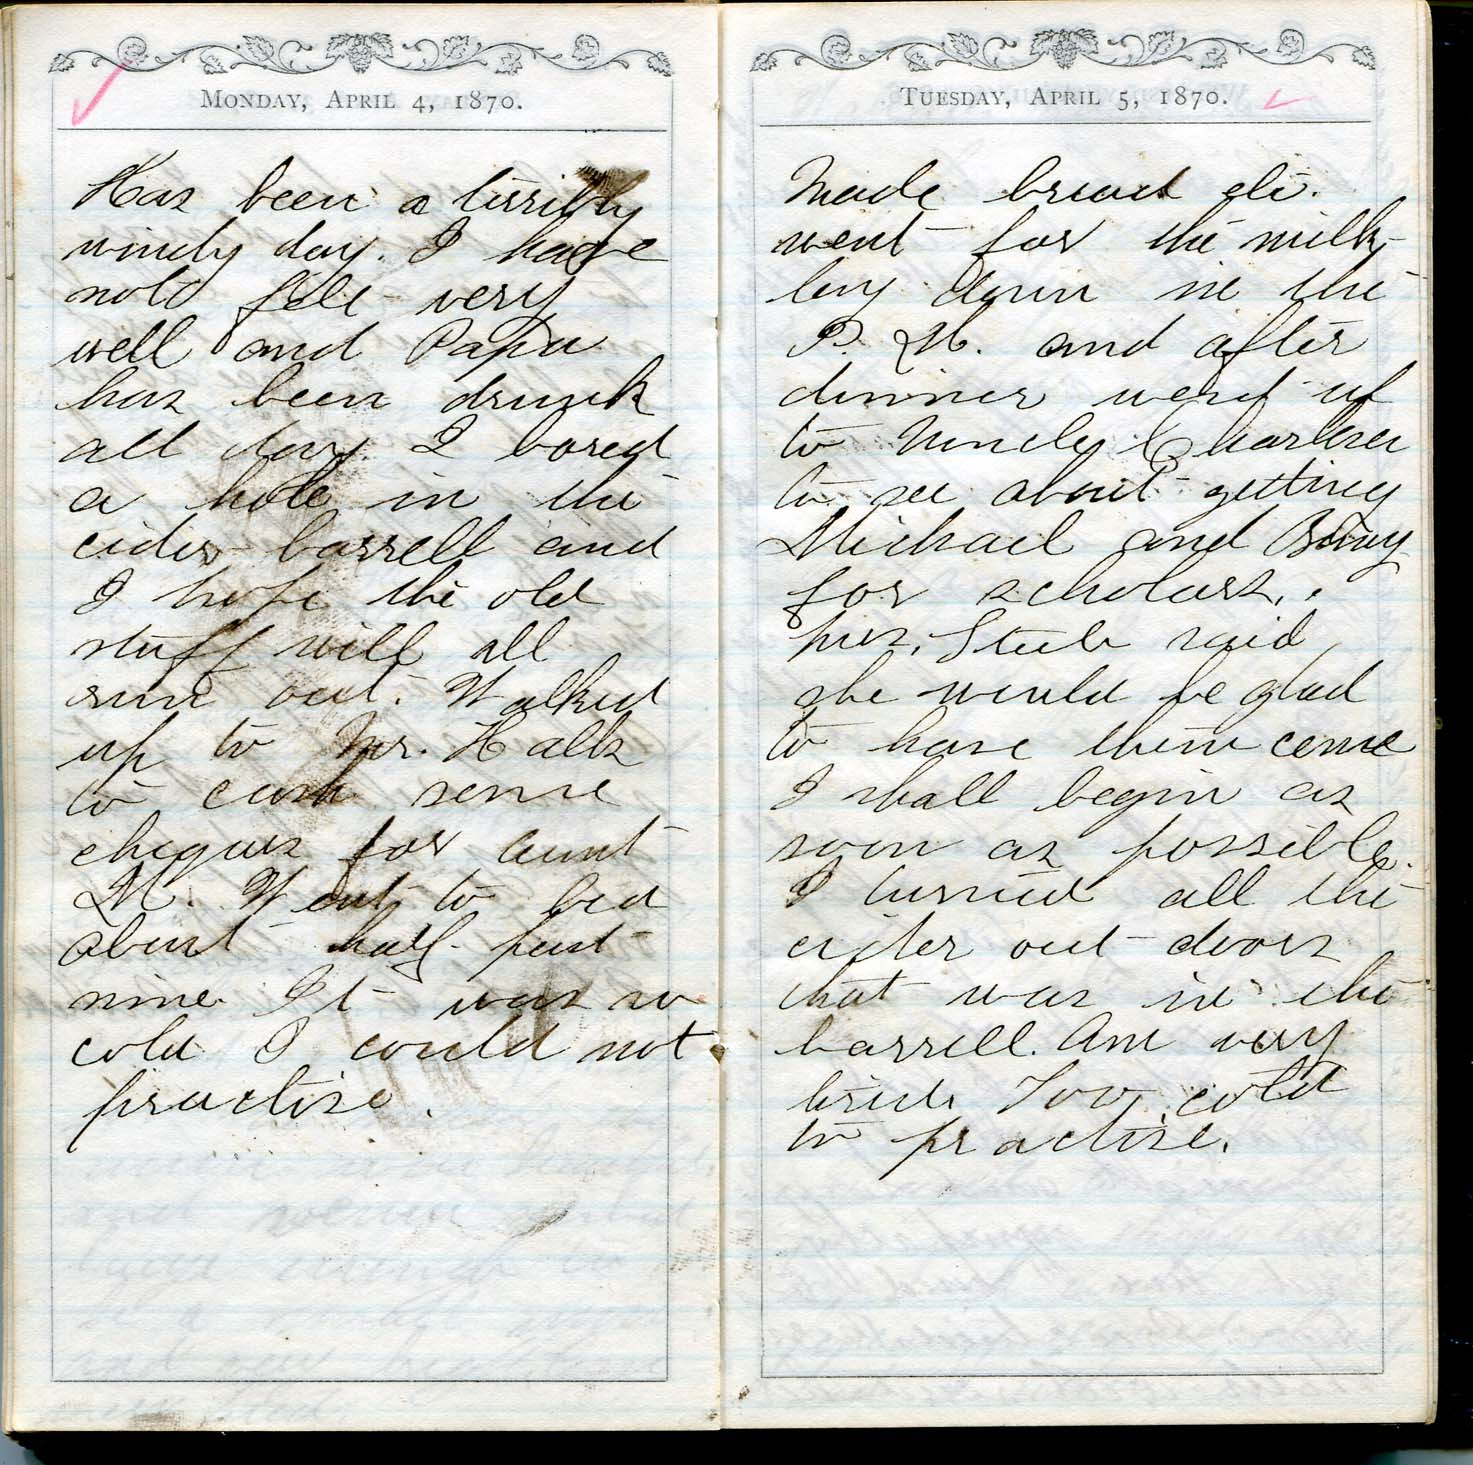 MONDAY, APRIL 4, 1870.
Has been a terribly
windy day. I have
not felt very
well and Papa
has been drunk
all day. I bored
a hole in the
cider barrell and
I hope the old
stuff will all
run out. Walked
up to Mr. Halls
to cash some
cheques for Aunt
M. Went to bed
about half past
nine It was so
cold I could not
practise.
TUESDAY, APRIL 5, 1870.
Made bread etc.
went for the milk
lay down in the
P. M. and after
dinner went up
to Uncle Charlies
to see about getting
Michael and
for scholars.
said
she would be glad
to have them come
I shall begin as
soon as possible.
I turned all the
cider out doors
that was in the
barrell. Am very
tired. Too cold
to practise.